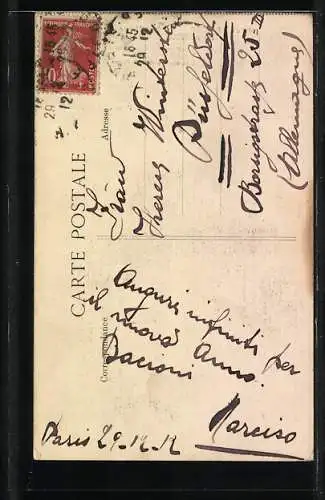 CARTE POSTALE
Correspondance
Adresse
Auguri infiniti per
il nuovo Anno.
Bacioni
Narciso
Paris 29-12-12
Frau
Düsseldorf
25 III
(Allemagne)